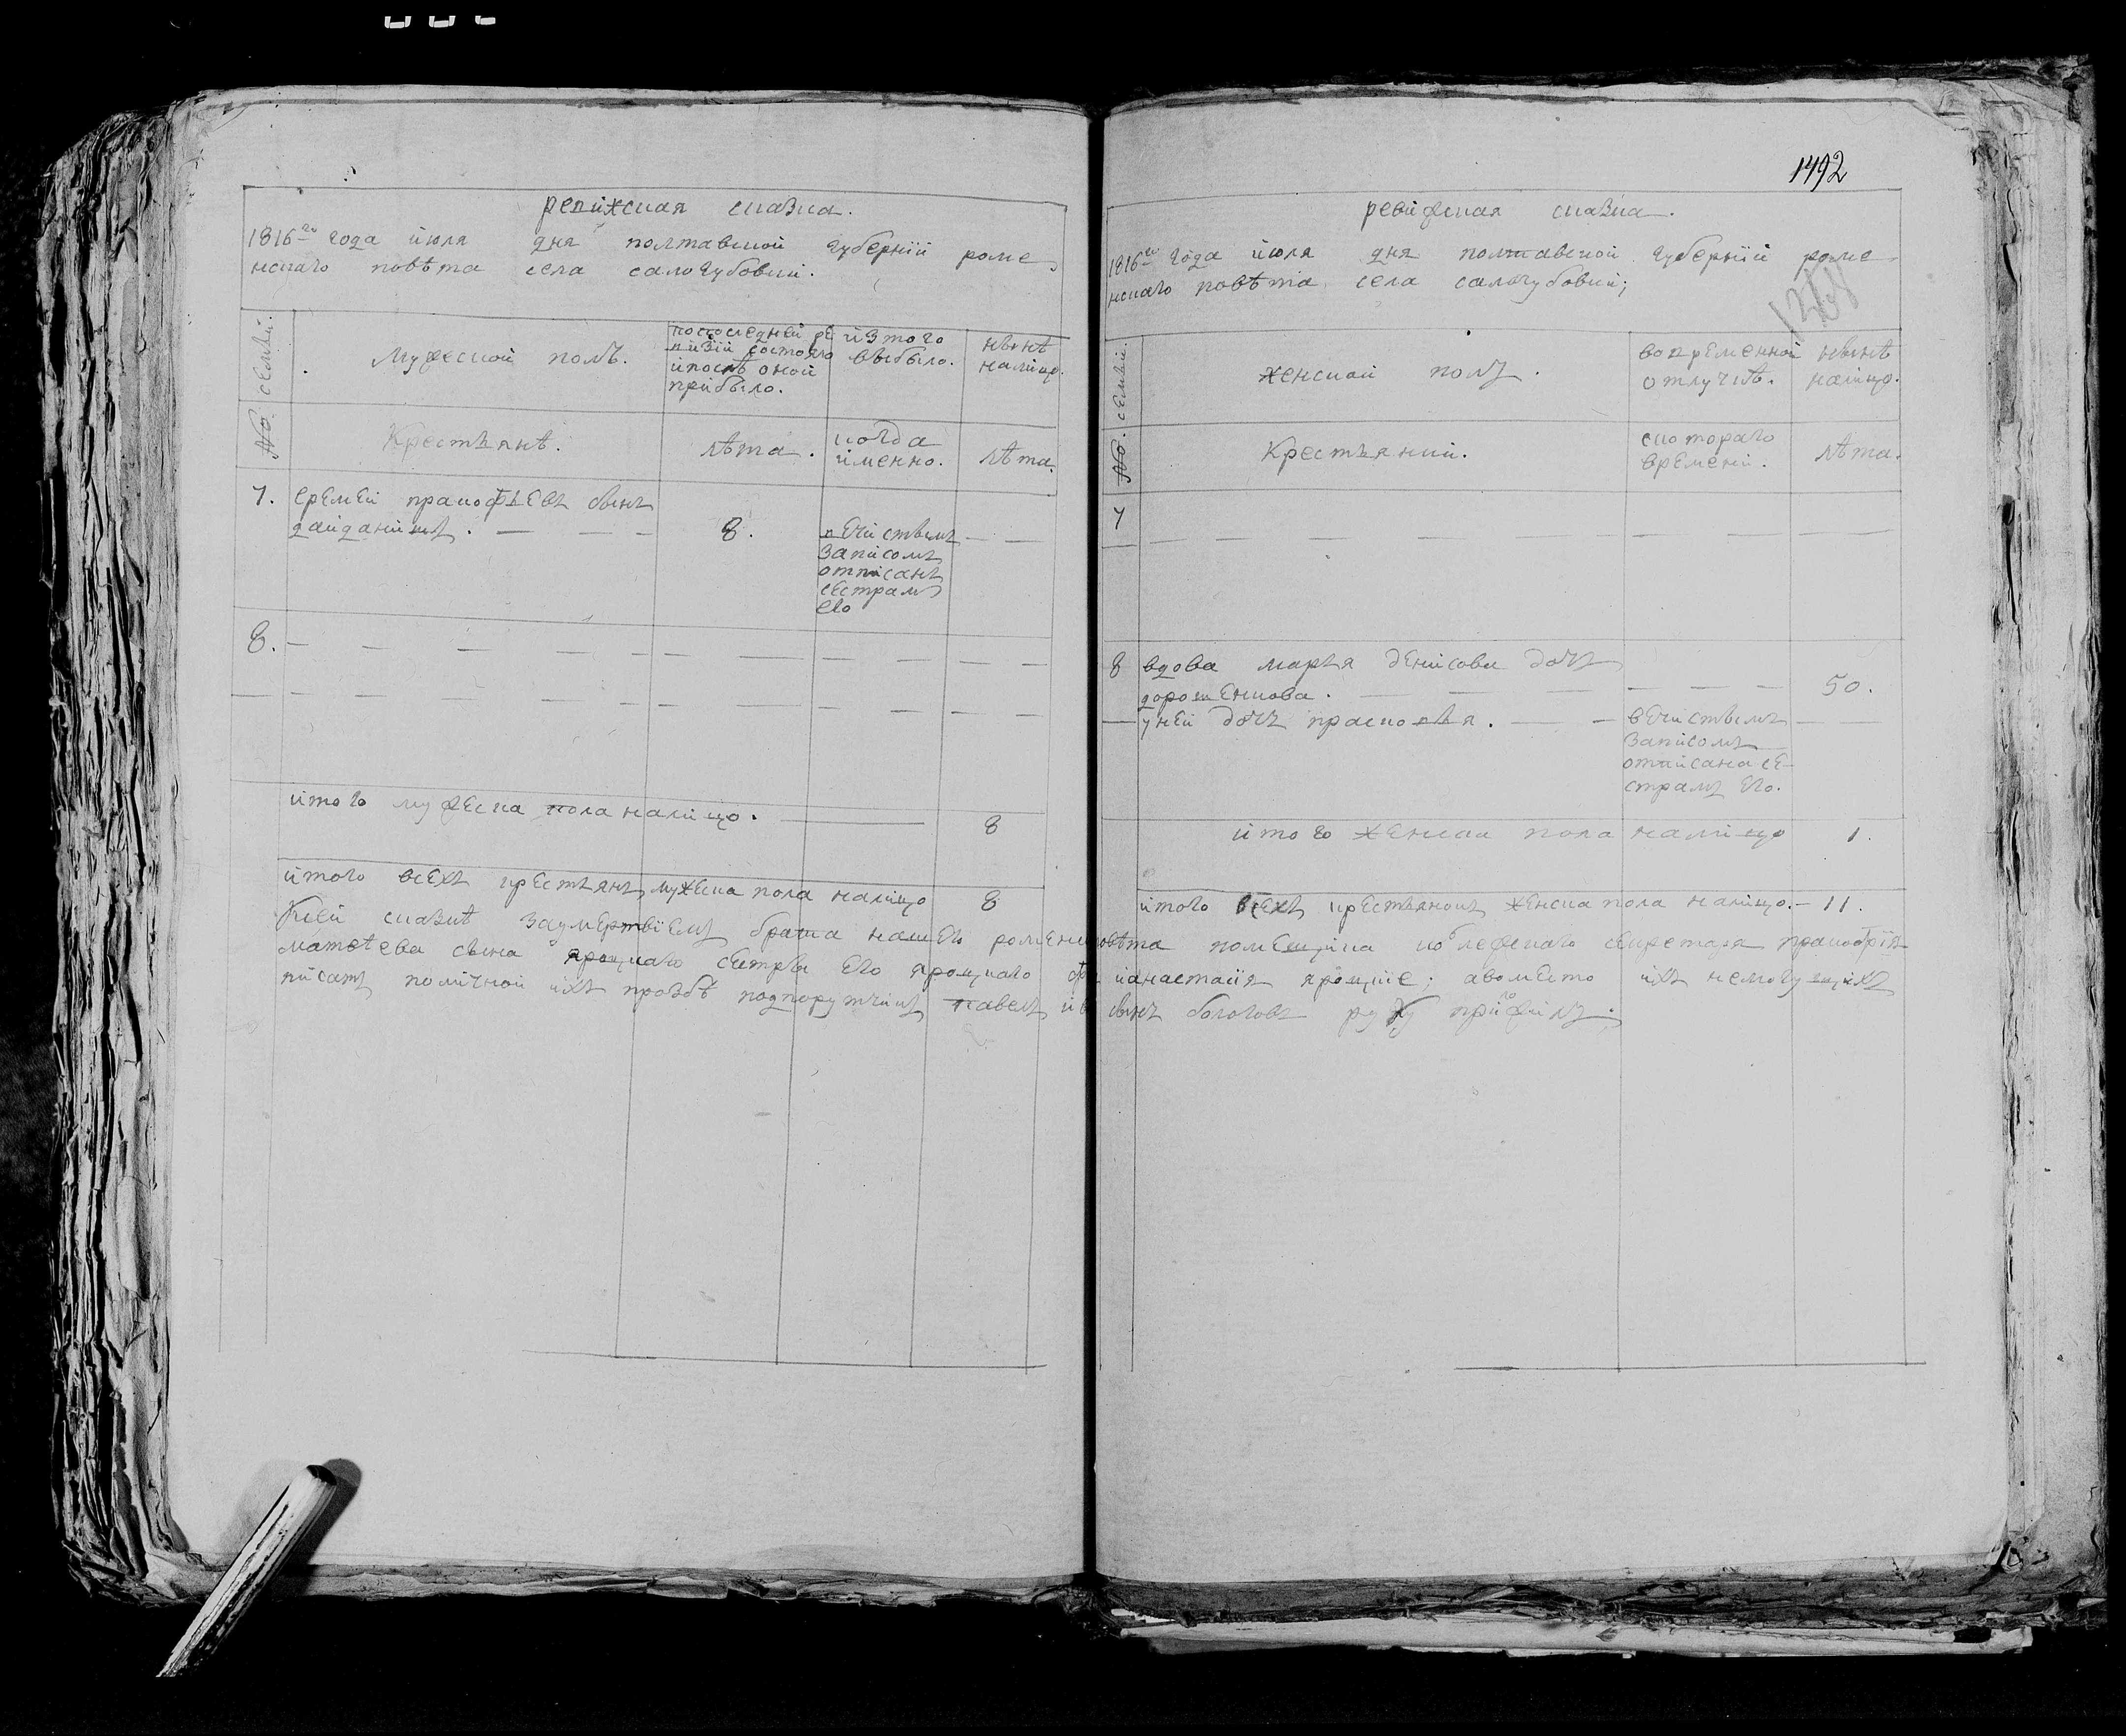 ревижская сказка.
1816го года июля дня полтавской губернїи роме
нскаго повѣта села самогубовки.
№ семѣй.
Мужеской полъ.
попоследней ре
визїи состояло
ипослѣ оной
прибыло.
изтого
выбыло.
нынѣ
налицо.
Крестьянѣ.
лѣта.
когда
именно.
лѣта.
7. еремей пракофьевъ сынъ
гайданикъ.
8.
вечистымъ
записомъ
отписанъ
сестрамъ
его
8.
итого мужеска пола налицо.
8
итого всехъ крестьянъ мужеска пола налицо
8
1492
ревижская сказка.
1816го года июля дня полтавской губернїи роме
нскаго повѣта села самогубовки;
№ семѣй.
женской полъ.
вовременной
отлучкѣ.
нынѣ
налицо.
Крестьянки.
скотораго
времени.
лѣта.
7
8 вдова марья денисова дочъ
дорошенкова.
50.
унеи дочъ прасковья.
вечистымъ
записомъ
отписана се-
страмъ его.
итого женска пола налицо
1.
итого всехъ крестьянокъ женска пола налицо.- 11.
Ксей сказкѣ заумертвїемъ брата нашего роменск повѣта помещика колежскаго секретаря
матвева сына яроцкаго сестры его яроцкаго ианастасїя яроцкїе; авоместо ихъ немогущихъ
писатъ поличной ихъ прозбѣ подпоручикъ павелъ сынъ болотовъ руку приложилъ.